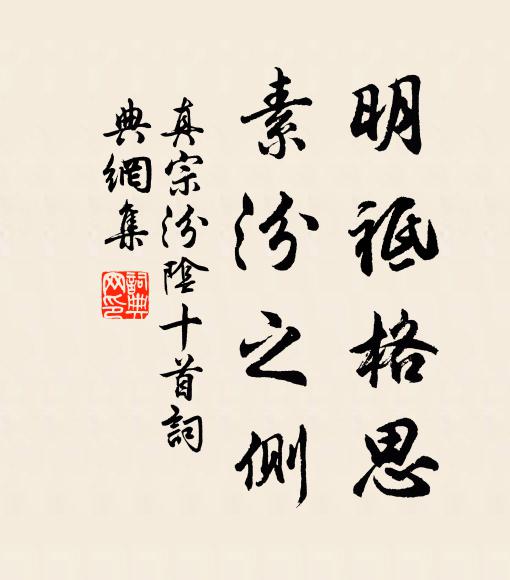 明祗格思
素汾之側
真宗汾陰十首詞
典網集
詞典網印